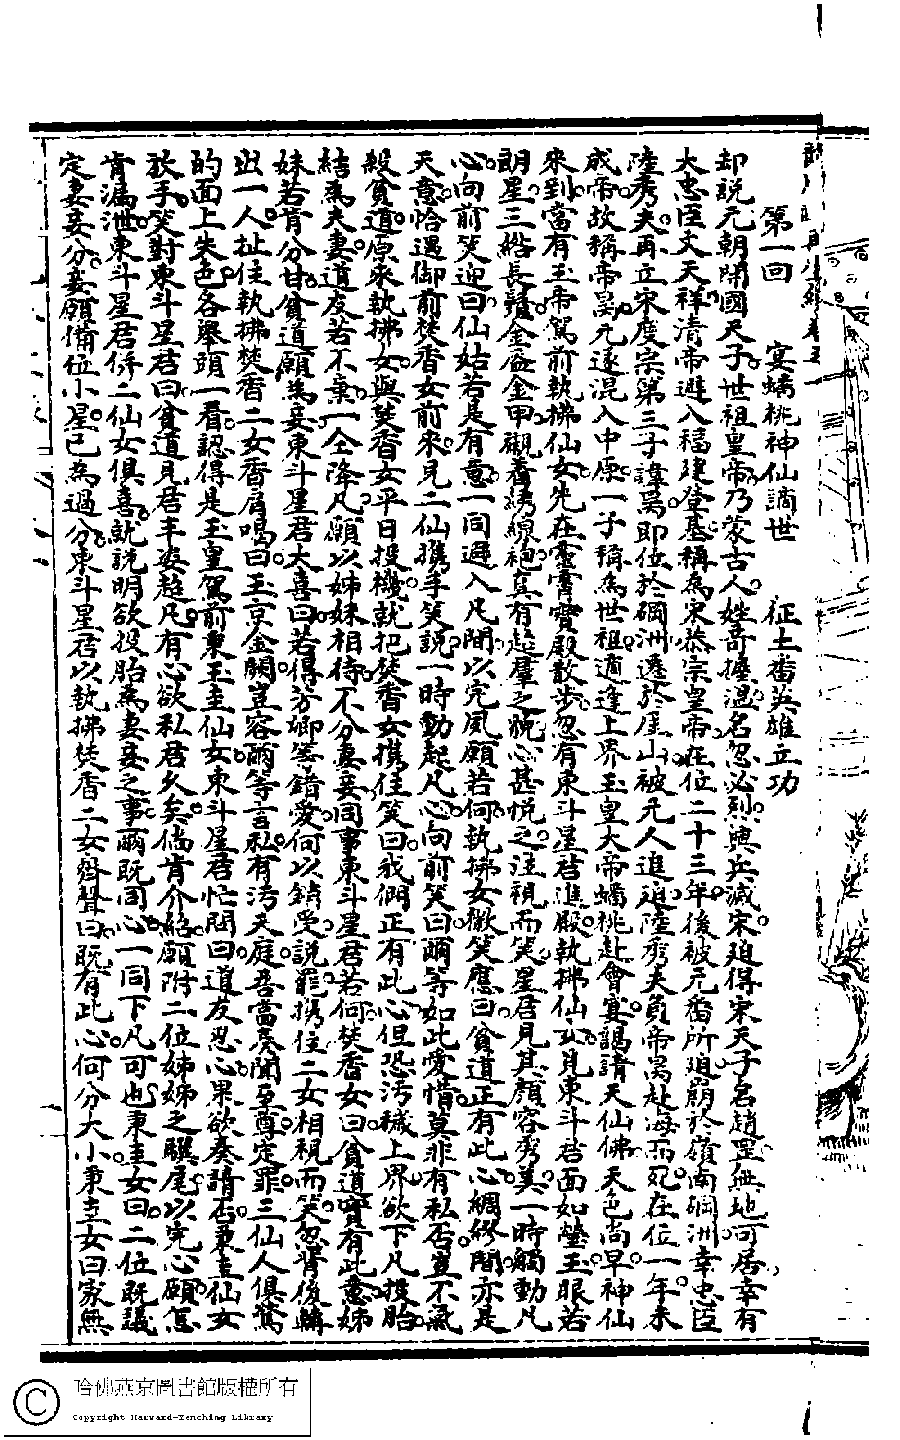 第一回　宴蟠桃神仙謫世　征土番英雄立功
却說元朝開國天子世祖皇帝乃蒙古人姓奇握溫名忽必烈興兵滅宋追得宋天子名趙昰無地可居幸有
大忠臣文天祥清帝進入福建登基稱為宋恭宗皇帝在位二十三年後被元番所追崩於嶺南碙洲幸忠臣
陸秀夫再立宋度宗第三子諱昺即位於碙洲遷於崖山被元人進追陸秀夫負帝昺赴海而死在位一年未
成帝故稱帝昺元遂混入中原一子稱為世祖適逢上界玉皇大帝蟠桃赴會宴謁請天仙佛天色尚早神仙
來到當有玉帝駕前執拂仙女先在靈霄寶殿散步忽有東斗星君進殿執拂仙女見東斗君面如瑩玉眼若
朗星三綹長鬚金盔金甲襯着綉線袍真有超羣之貌心甚悅之注視而笑星君見其顏容秀美一時觸動凡
心向前笑迎曰仙姑若是有意一同進入凡間以完夙願若何執拂女微笑應曰貧道正有此心綢繆間亦是
天意恰遇御前焚香女前來見二仙携手笑說一時動起凡心向前笑曰爾等如此愛惜莫非有私否豈不氣
殺貧道原來執拂女與焚香女平日投機就把焚香女携住笑曰我們正有此心但恐污穢上界欲下凡投胎
結為夫妻道友若不棄一仝降凡願以姊妹相待不分妻妾同事東斗星君若何焚香女曰貧道實有此意姊
妹若肯分甘貧道願為妾東斗星君大喜曰若得芳卿等錯愛何以銷受說罷携住二女相視而笑忽背後轉
出一人扯住執拂焚香二女香肩喝曰玉京金闕豈容爾等言私有污天庭吾當奏聞至尊定罪三仙人俱驚
的面上朱色各舉頭一看認得是玉皇駕前秉玉圭仙女東斗星君忙問曰道友忍心果欲奏請否秉圭仙女
放手笑對東斗星君曰貧道見君丰姿超凡有心欲私君久矣倘肯介紹願附二位姊姊之驥尾以完心願怎
肯漏泄東斗星君併二仙女俱喜就說明欲投胎為妻妾之事爾既同心一同下凡可也秉圭女曰二位既議
定妻妾分妾願備位小星已為過分東斗星君以執拂焚香二女齊聲曰既有此心何分大小秉圭女曰家無
哈佛燕京圖書館版權所有
Copyright Harvard-Yenching Library